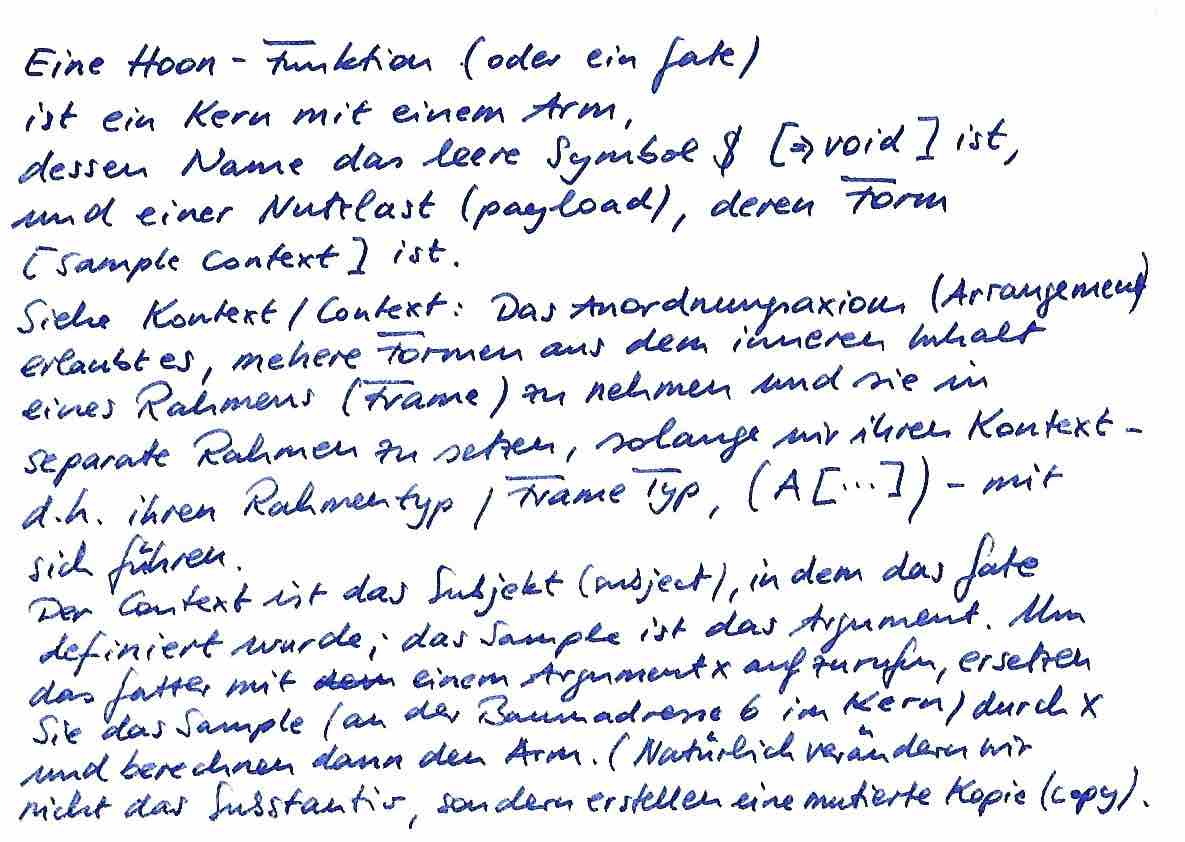 Eine Hoon-Funktion (oder ein Gate)
ist ein Kern mit einem Arm,
dessen Name das leere Symbol $ [⇒ void] ist,
und einer Nutzlast (payload), deren Form
[Sample Context] ist.
Siehe Kontext/Context: Das Anordnungsaxiom (Arrangement)
erlaubt es, mehere Formen aus dem inneren Inhalt
eines Rahmens (Frame) zu nehmen und sie in
separate Rahmen zu setzen, solange wir ihren Kontext -
d.h. ihren Rahmentyp / Frame Typ, (A[...]) - mit
sich führen.
Der Context ist das Subjekt (subject), in dem das Gate
definiert wurde; das Sample ist das Argument. Um
das Gatter mit einem Argument x aufzurufen, ersetzen
Sie das Sample (an der Baumadresse 6 im Kern) durch x
und berechnen dann den Arm. (Natürlich verändern wir
nicht das Substantiv, sondern erstellen eine mutierte Kopie (copy).